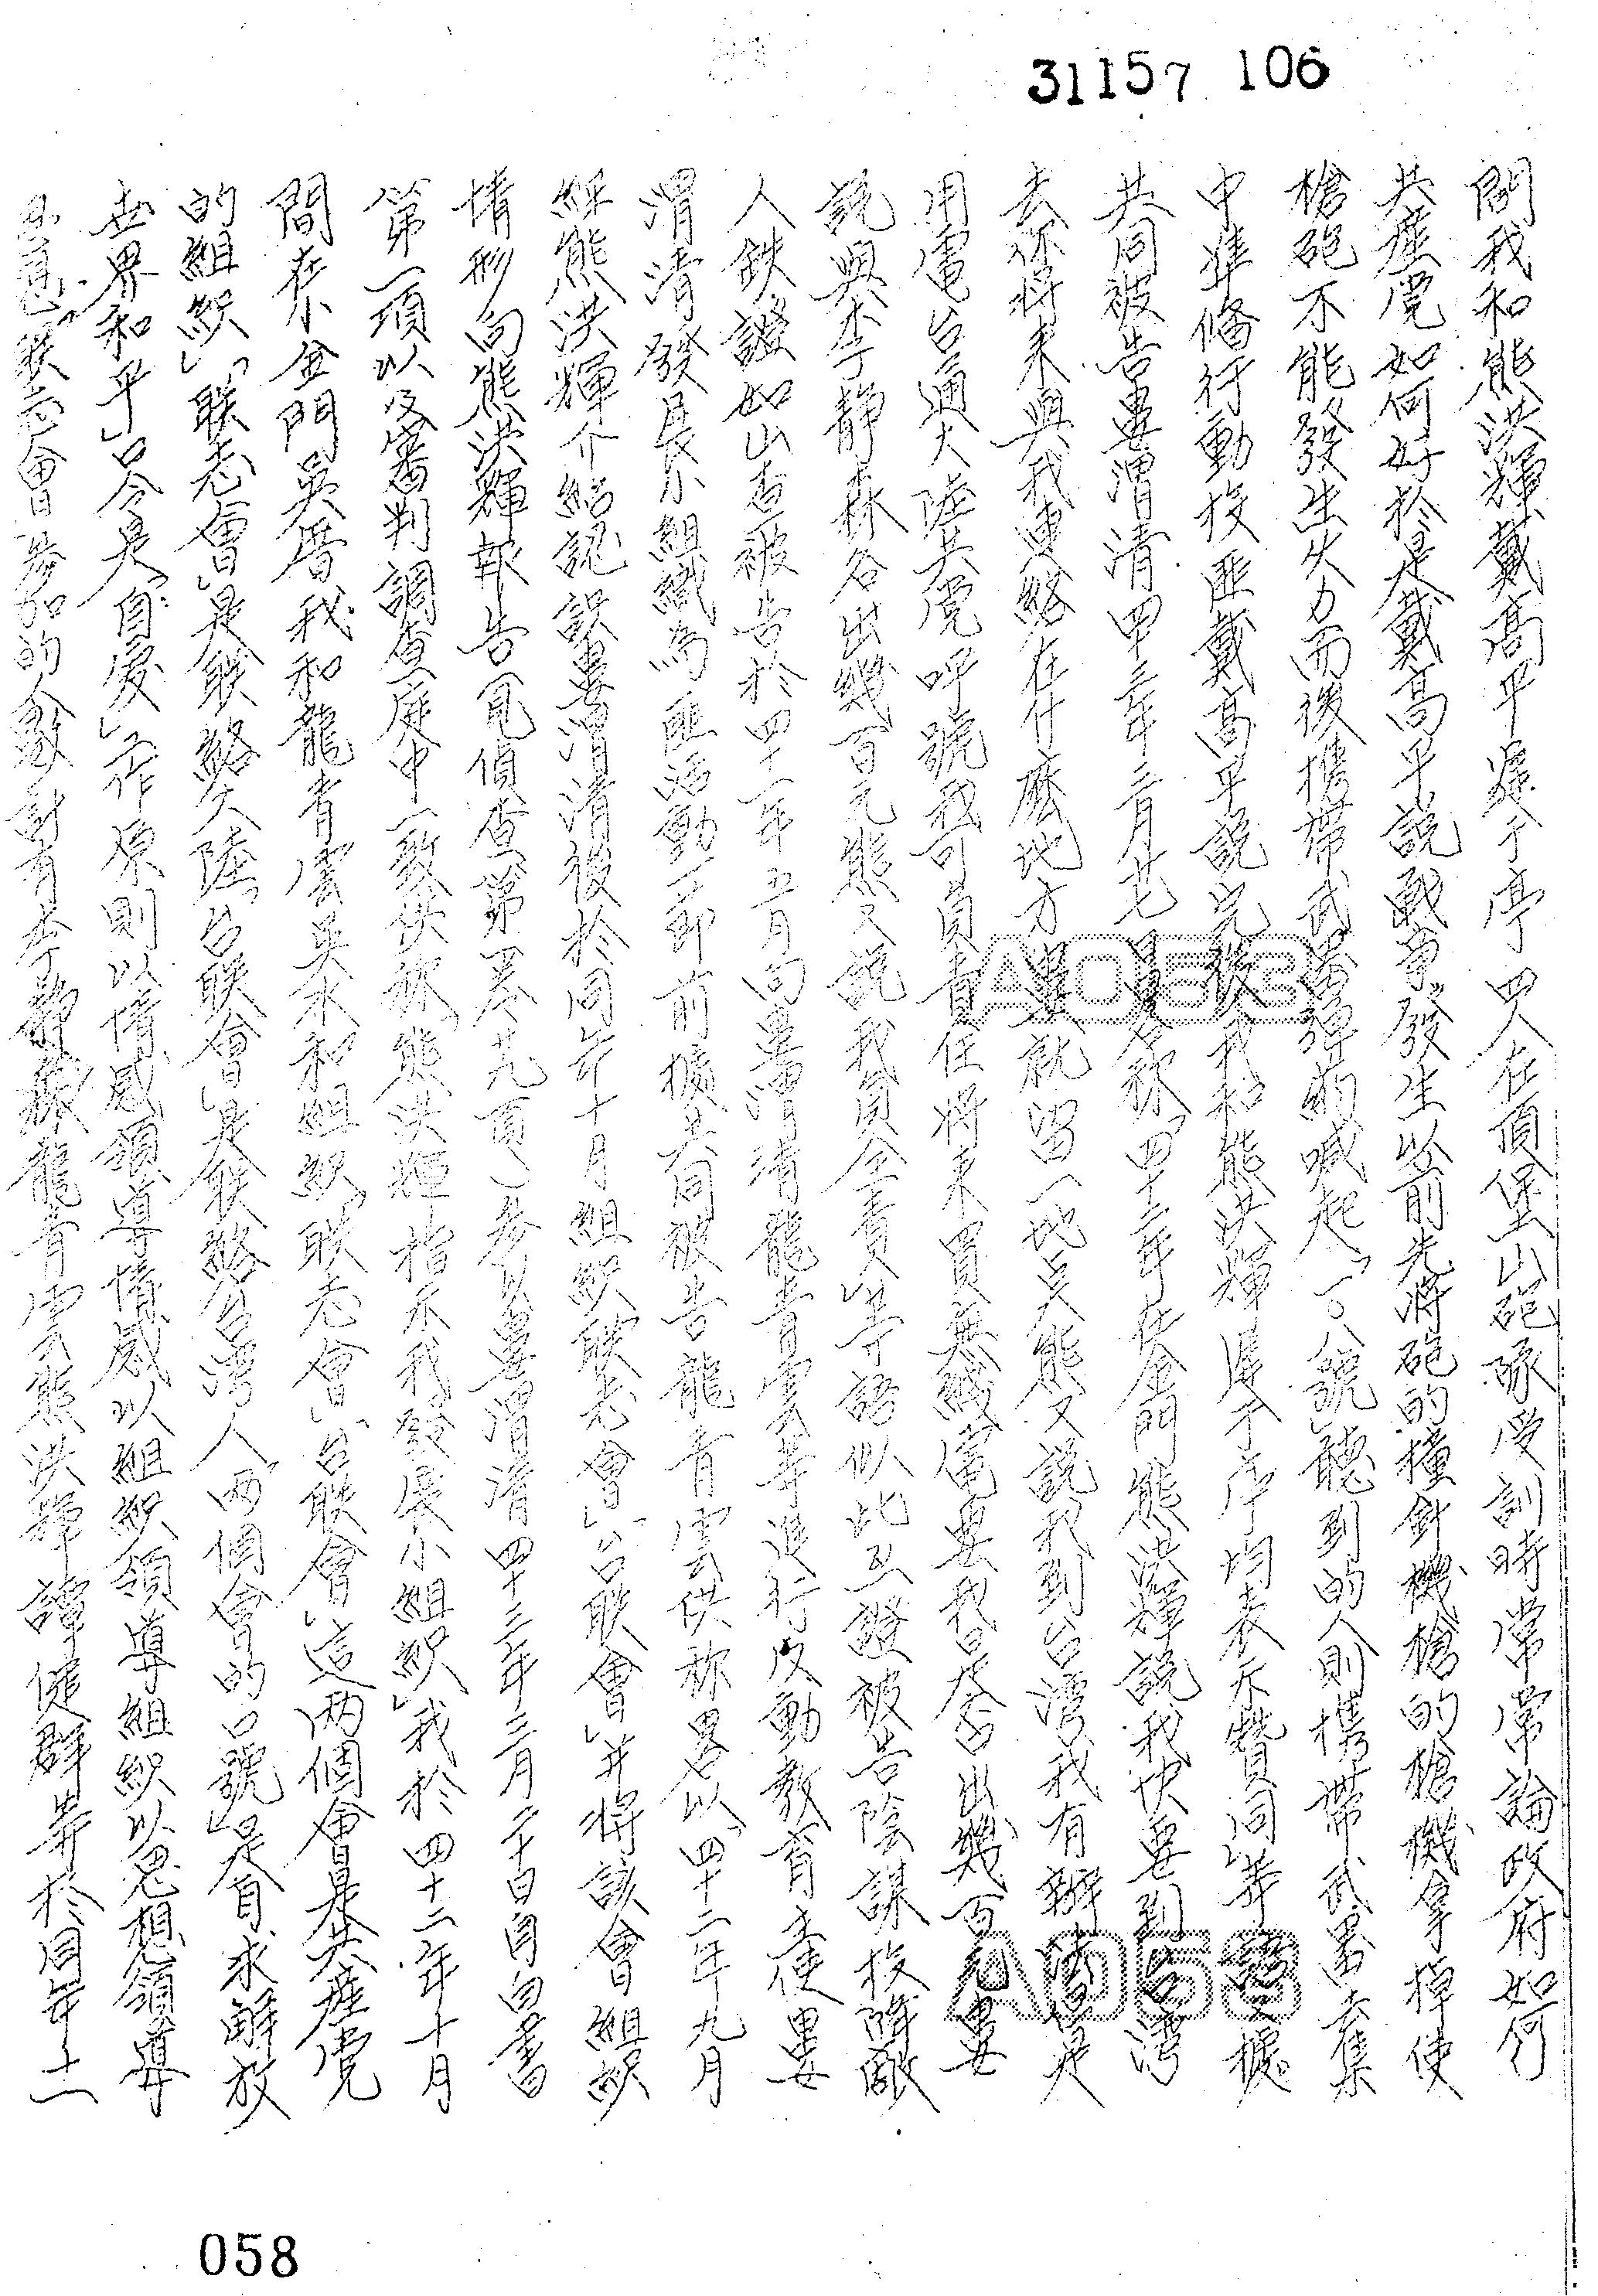 31157 106
間我和熊洪輝戴高平馮丁亭四人在頂堡山砲隊受訓時常常論政府如何
共產党如何好於是戴高平說戰爭發生以前先將砲的撞針機槍的槍機拿掉使
槍砲不能發生火力而後攜帶武器彈葯喊起「一〇八號」聽到的人則攜帶武器去集
中準備行動投匪戴高平說完後我和熊洪輝馮丁亭均表示贊同」等語又據
共同被告婁渭清四十三年三月廿七日供称「四十二年在金門熊洪輝說我快要到台灣
去你將來與我連絡在什麼地方婁就留一地点熊又說我到台灣我有辦法先
用電台通大陸共党呼號我可負責任將來買無綫電要我自己出幾百元婁
說與李靜森各出幾百元熊又說我負全責」等語似此互證被告陰謀投降敵
人鉄證如山查被告於四十二年五月向婁渭清龍青雲等進行反動教育主使婁
渭清發展小組織為匪活動一節前據共同被告龍青雲供称婁以「四十二年九月
經熊洪輝介紹認識婁渭清後於同年十月組織「联志會」「台联會」并將該會組織
情形向熊洪輝報告(見偵查第 卷九頁)參以婁渭清四十三年三月二十日自白書
第一項以及審判調查庭中一致供称「熊洪輝指示我發展小組織」我於四十二年十月
間在小金門吳厝我和龍青雲吳水和組織「联志會」「台联會」這両個會是共產党
的組織「联志會」是联絡大陸「台联會」是联絡台灣人両個會的口號」是「自求解放
世界和平」口令是「自愛」工作原則以情感領導情感以組織領導組織以思想領導
思想联志會參加的人數計有李靜森龍青雲熊洪輝譚健群等於同年十一
A053
A053
058